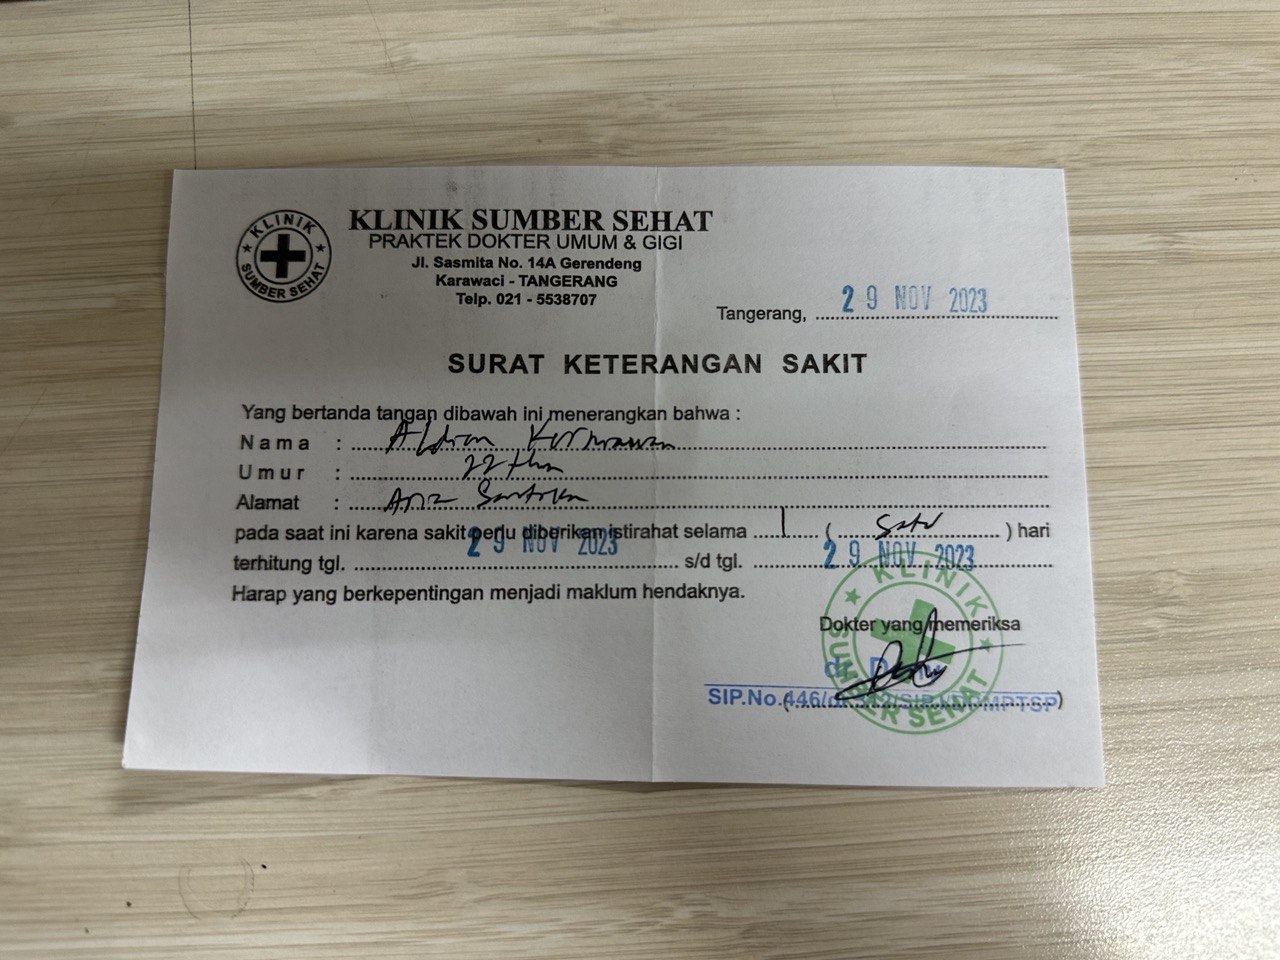 KLINIK SUMBER SEHAT
KLINIK SUMBER SEHAT
PRAKTEK DOKTER UMUM & GIGI
Jl. Sasmita No. 14A Gerendeng
Karawaci - TANGERANG
Telp. 021 - 5538707
Tangerang, 29 NOV 2023
SURAT KETERANGAN SAKIT
Yang bertanda tangan dibawah ini menerangkan bahwa :
Nama : Kurniawan
Umur : 22 thn
Alamat :
pada saat ini karena sakit perlu diberikan istirahat selama 1 ( Satu ) hari
terhitung tgl. 29 NOV 2023 s/d tgl. 29 NOV 2023
Harap yang berkepentingan menjadi maklum hendaknya.
KLINIK SUMBER SEHAT
Dokter yang memeriksa
dr.
SIP.No.446/